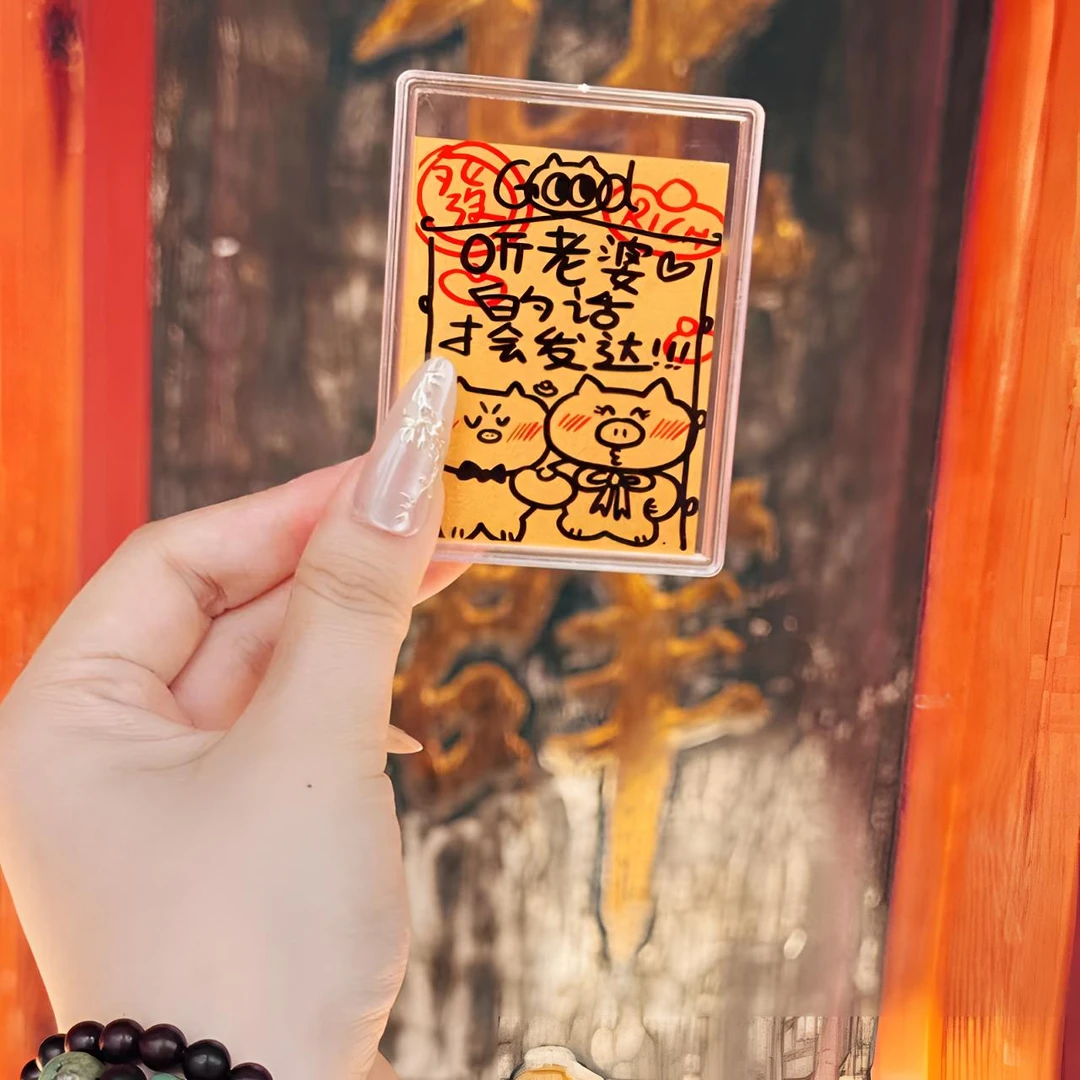 發 Good RICH
听老婆
的话
才会发达!!!